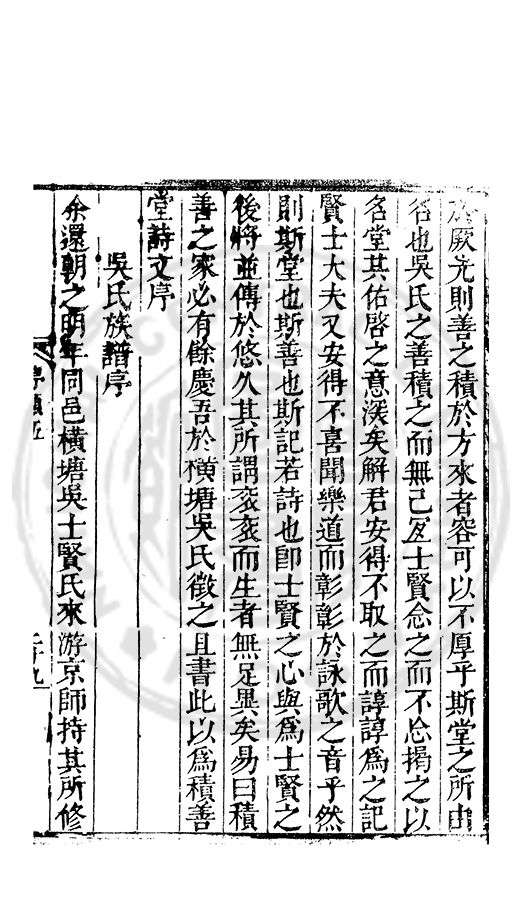 厥先則善之積於方來者容可以不厚乎斯堂之所由
名也吳氏之善積之而無已士賢念之而不忘揭之以
名堂其佑啓之意深矣解君安得不取之而諄諄爲之記
賢士大夫又安得不喜聞樂道而彰彰於詠歌之音乎然
則斯堂也斯善也斯記若詩也卽士賢之心與爲士賢之
後將並傳於悠久其所謂而生者無足異矣易曰積
善之家必有餘慶吾於橫塘吳氏徵之且書此以爲積善
堂詩文序
吳氏族譜序
余還朝之明年同邑橫塘吳士賢氏來游京師持其所修